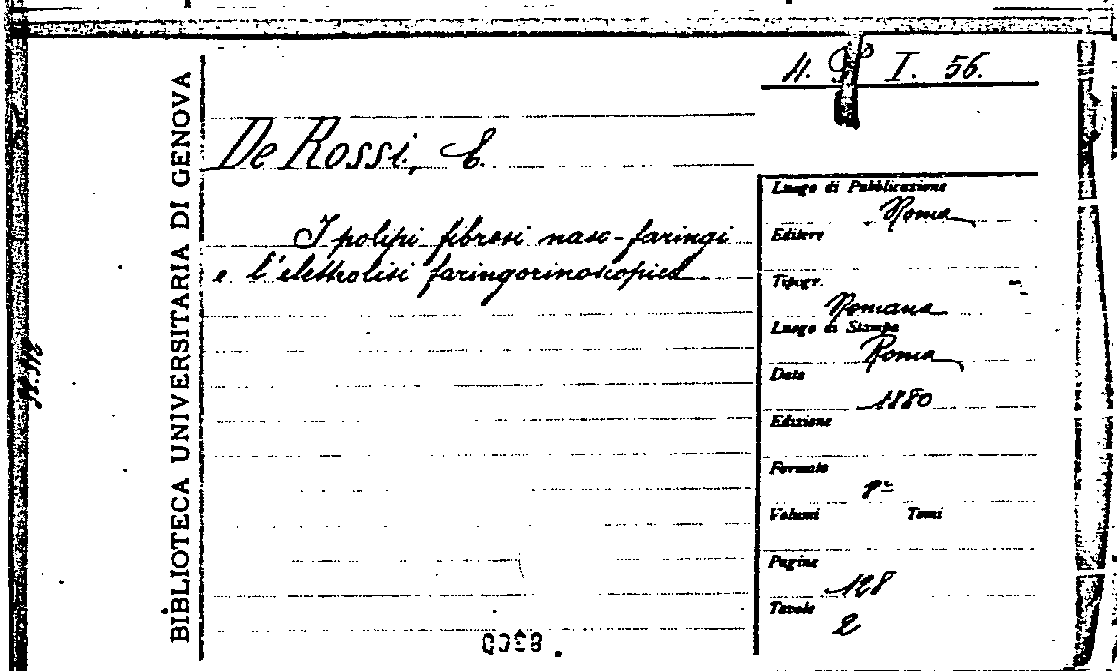 BIBLIOTECA UNIVERSITARIA DI GENOVA
I. 56.
De Rossi, E.
I polipi fibrosi naso-faringi
e l'elettrolisi faringorinoscopica
Luogo di Pubblicazione
Roma
Editore
Tipogr.
Romana
Luogo di Stampa
Roma
Data
1880
Edizione
Formato
8º
Volumi Tomi
Pagine
128
Tavole
2